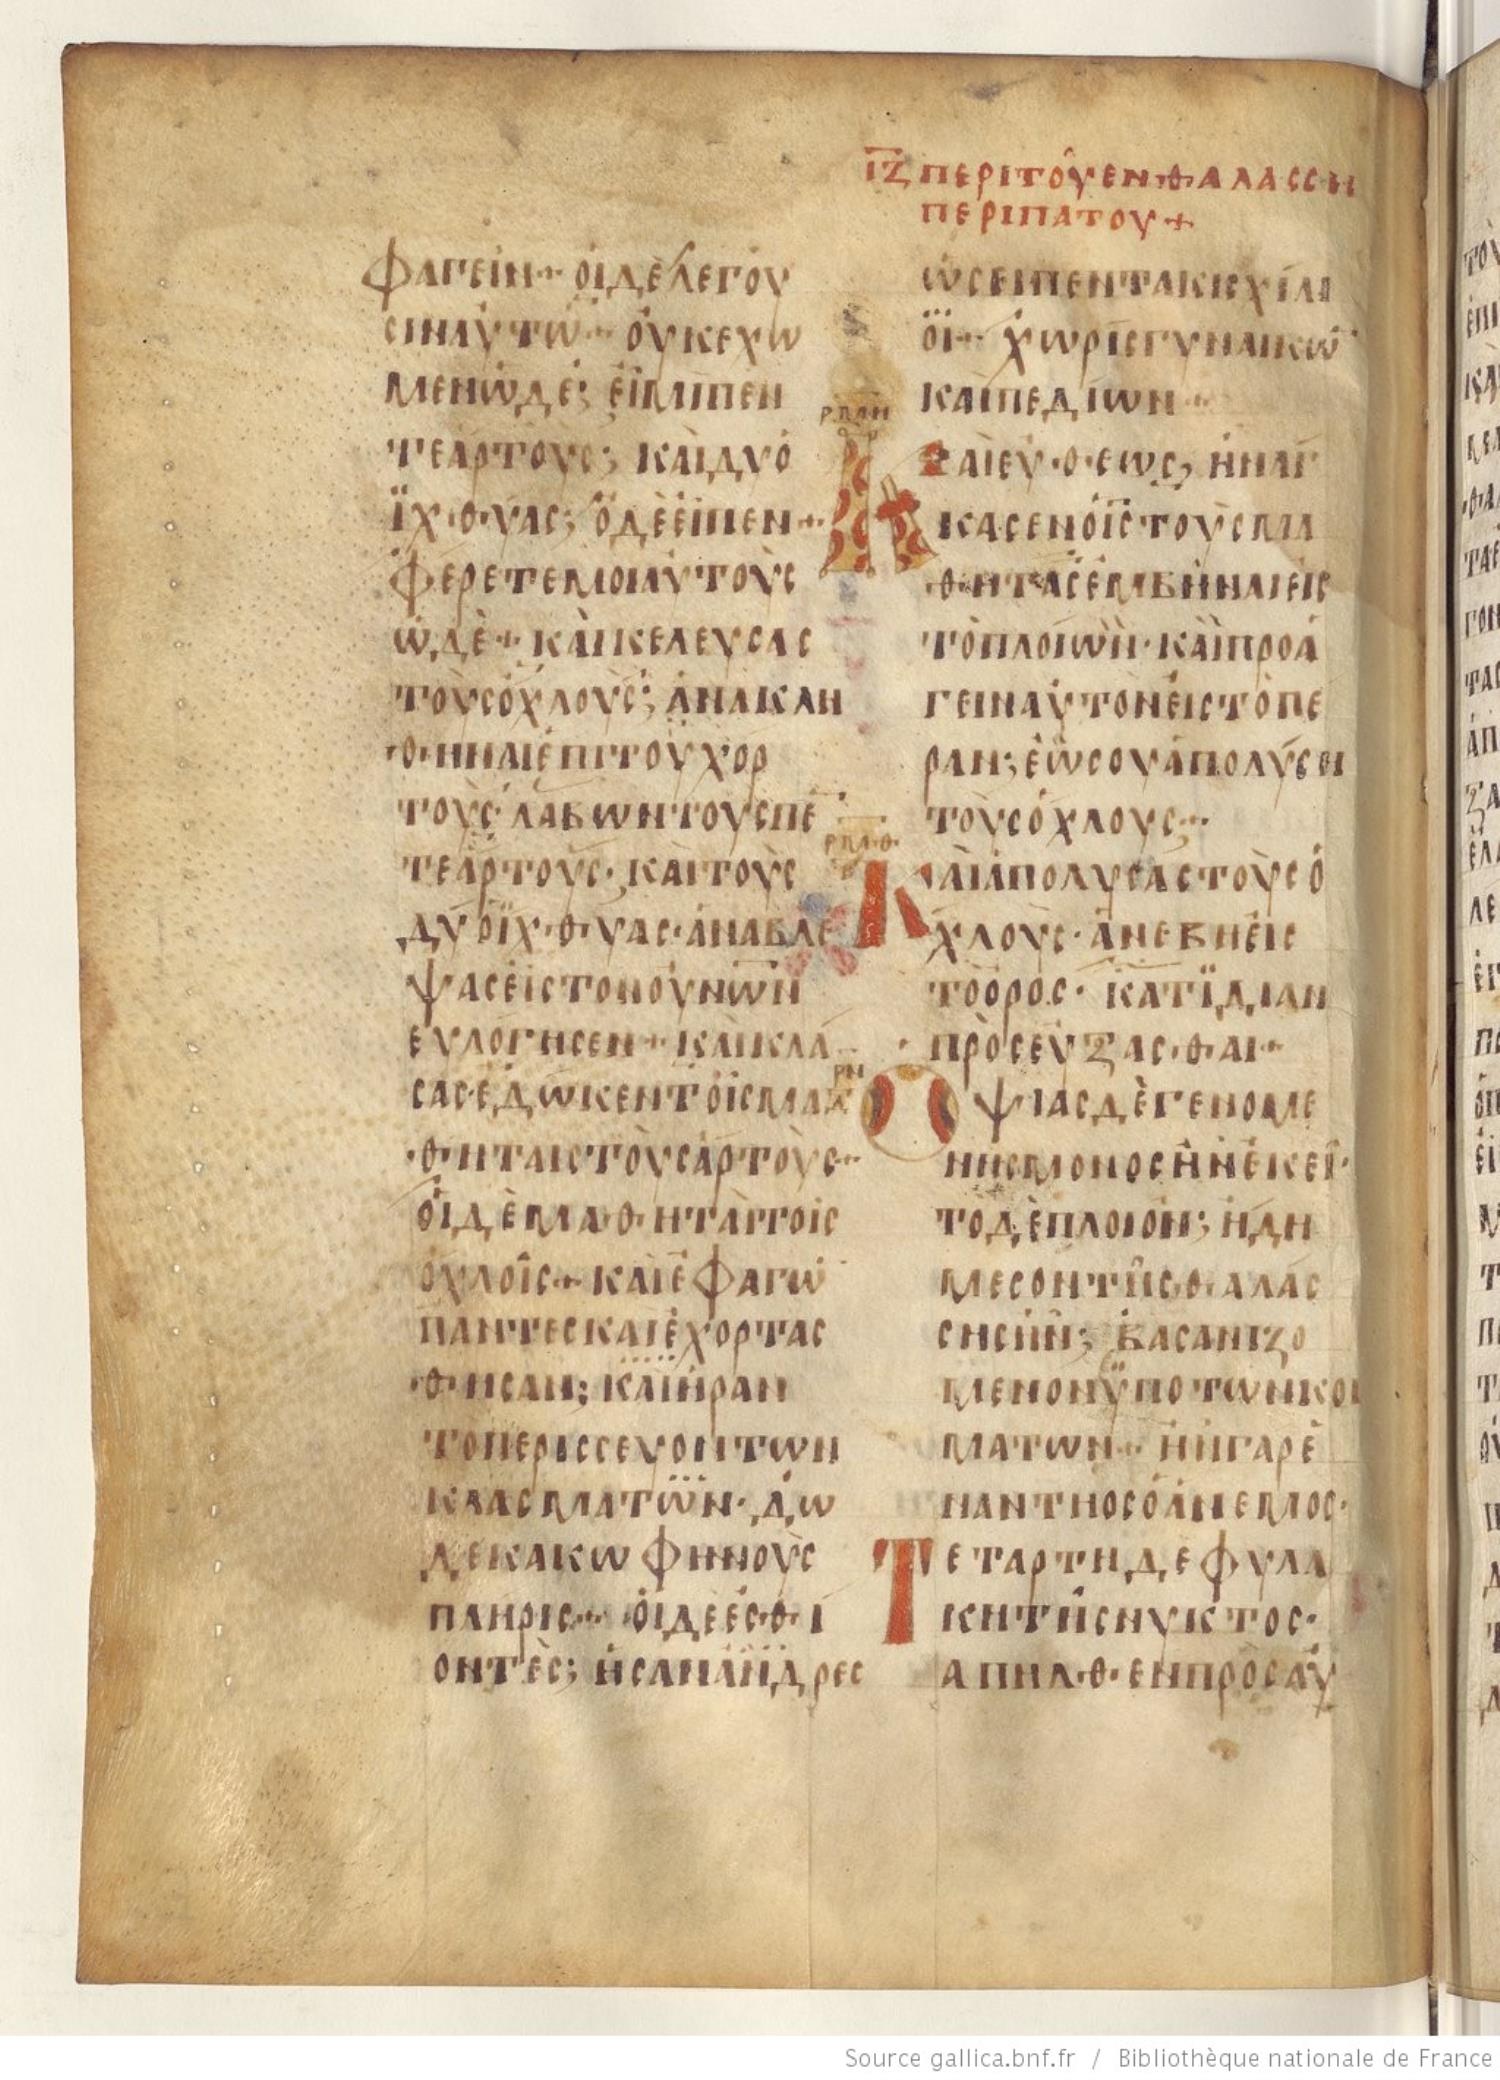 ΙΖ ΠΕΡΙ ΤΟΥ ΕΝ ΘΑΛΑССΗ
ΠΕΡΙΠΑΤΟΥ+
ΦΑΓΕΙΝ·· ΟΙΔΕ ΛΕΓΟΥ
СΙΝΑΥΤΩ·· ΟΥΚΕΧΩ
ΜΕΝΩΔΕ; ΕΙΜΙΠΕΝ
ΤΕΑΡΤΟΥС; ΚΑΙΔΥΟ
ΪΧΘΥΑС; ΟΔΕΕΙΠΕΝ·+
ΦΕΡΕΤΕΜΟΙΑΥΤΟΥС
ΩΔΕ·+ ΚΑΙΚΕΛΕΥСΑС
ΤΟΥСΟΧΛΟΥС; ΑΝΑΚΛΗ
ΘΗΝΑΙΕΠΙΤΟΥΧΟΡ
ΤΟΥС ΛΑΒΩΝΤΟΥСΠΕ
ΤΕΑΡΤΟΥС· ΚΑΙΤΟΥС
ΔΥΟΪΧΘΥΑС·ΑΝΑΒΛΕ
ΨΑСΕΙСΤΟΝΟΥΝΩΝ
ΕΥΛΟΓΗСΕΝ·+ ΚΑΙΚΛΑ
СΑСΕΔΩΚΕΝΤΟΙСΜΑ
ΘΗΤΑΙСΤΟΥСΑΡΤΟΥС··
ΟΙΔΕΜΑΘΗΤΑΙΤΟΙС
ΟΧΛΟΙС·+ ΚΑΙΕΦΑΓΩ
ΠΑΝΤΕСΚΑΙΕΧΟΡΤΑС
ΘΗСΑΝ; ΚΑΙΗΡΑΝ
ΤΟΠΕΡΙССΕΥΟΝΤΩΝ
ΚΛΑСΜΑΤΩΝ· ΔΩ
ΔΕΚΑΚΩΦΗΝΟΥС
ΠΛΗΡΙС·· ΟΙΔΕΕСΘΙ
ΟΝΤΕС; ΗСΑΝΑΝΔΡΕС
ΩСΕΙΠΕΝΤΑΚΙСΧΙΛΙ
ΟΙ·· ΧΩΡΙСΓΥΝΑΙΚΩ
ΚΑΙΠΕΔΙΩΝ··
ΡΜΗ
ΚΑΙΕΥΘΕΩС; ΗΝΑΓ
ΚΑСΕΝΟΙСΤΟΥСΜΑ
ΘΗΤΑСΕΜΒΗΝΑΙΕΙС
ΤΟΠΛΟΙΩΝ·ΚΑΙΠΡΟΑ
ΓΕΙΝΑΥΤΟΝΕΙСΤΟΠΕ
ΡΑΝ;ΕΩСΟΥΑΠΟΛΥСΕΙ
ΤΟΥСΟΧΛΟΥС··
ΡΜΘ
ΚΑΙΑΠΟΛΥСΑСΤΟΥСΟ
ΧΛΟΥС· ΑΝΕΒΗΕΙС
ΤΟΟΡΟС· ΚΑΤΪΔΙΑΝ
ΠΡΟСΕΥΞΑСΘΑΙ··
ΡΝ
ΟΨΙΑСΔΕΓΕΝΟΜΕ
ΝΗСΜΟΝΟСΗΝΕΚΕΙ·
ΤΟΔΕΠΛΟΙΟΝ; ΗΔΗ
ΜΕСΟΝΤΗСΘΑΛΑС
СΗСΗΝ; ΒΑСΑΝΙΖΟ
ΜΕΝΟΝΫΠΟΤΩΝΚΟΙ
ΜΑΤΩΝ·· ΗΝΓΑΡΕ
ΝΑΝΤΗΟСΟΑΝΕΜΟС·
ΤΕΤΑΡΤΗΔΕΦΥΛΑ
ΚΗΤΗСΝΥΚΤΟС·
ΑΠΗΛΘΕΝΠΡΟСΑΥ
Source gallica.bnf.fr / Bibliothèque nationale de France